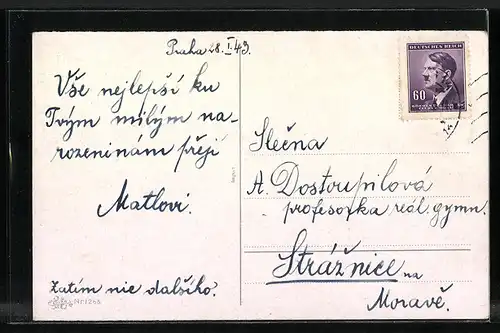 Praha 28.I.43.
Vše nejlepší ku
Tvým milým na-
rozeninám přejí
Matlovi.
Zatím nic dalšího.
DEUTSCHES REICH
60
Slečna
A. Dostoupilová
profesorka reál. gymn.
Strážnice na
Moravě.